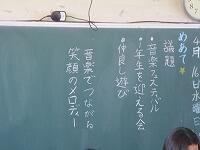 4月16日水曜日
めあて
議題
・音楽フェスティバル
・1年生を迎える会
・仲良し遊び
音楽でつながる
笑顔のメロディー